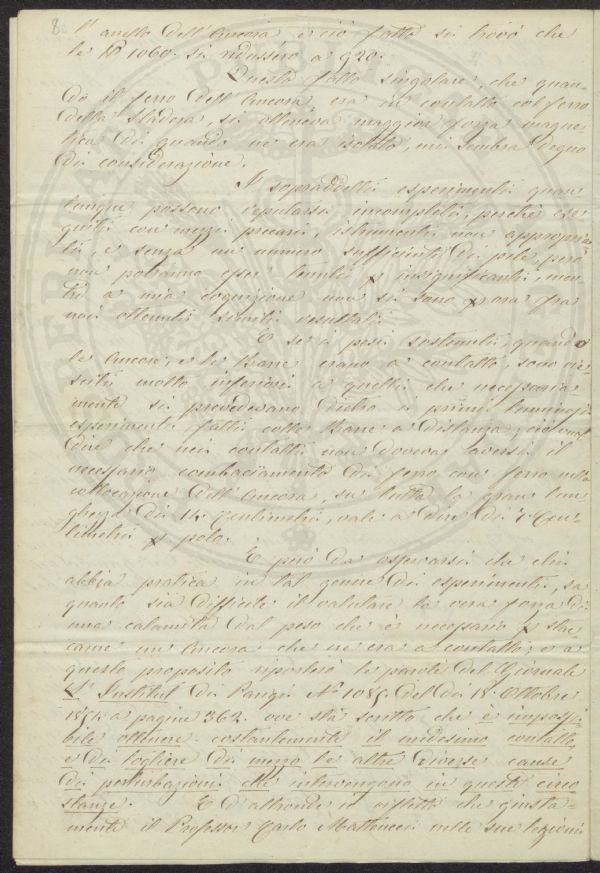 8.
l'anello dell'Ancora, e ciò fatto si trovò che
le lb 1060. si ridussero a 920.
Questo fatto singolare, che quan-
do il ferro dell'Ancora era in contatto col ferro
della Stadera, si otteneva maggior forza magne-
tica di quando ne era isolato, mi sembra degno
di considerazione.
I sopraddetti esperimenti quan-
tunque possono reputarsi incompleti, perchè ese-
guiti con mezzi precari, istrumenti non appropria-
ti, e senza un numero sufficiente di pile, però
non potranno esser tenuti p insignificanti, men-
tre a mia cognizione non si sono p ora fra
noi ottenuti simili resultati.
E se i pesi sostenuti, quando
le Ancore, e le Barre erano a contatto, sono rie-
sciti molto inferiori a quelli che necessaria-
mente si prevedevano dietro i primi luminosi
esperimenti fatti colle Barre a distanza, ciò vuol
dire che nei contatti non doveva aversi il
necessario combaciamento di ferro con ferro nella
collocazione dell'Ancora, su tutta la gran lun-
ghezza di 14. Centimetri, vale a dire di 7 Cen-
timetri p polo.
È però da osservarsi che chi
abbia pratica in tal genere di esperimenti, sa
quanto sia difficile il valutare la vera forza di
una calamita dal peso che è necessario p stac-
carne un'Ancora che ne era a contatto; e a
questo proposito riporterò le parole del Giornale
L'Institut di Parigi No 1085. del dì 18. Ottobre
1854. a pagine 362. ove stà scritto che è impossi-
bile ottenere costantemente il medesimo contatto,
e di togliere di mezzo le altre diverse cause
di perturbazioni che intervengono in queste circo-
stanze. E d'altronde è riflesso che giusta-
mente il Professor Carlo Matteucci nelle sue lezioni